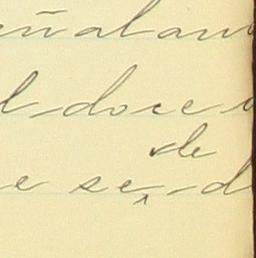 eñalan
l doce
de
e se d